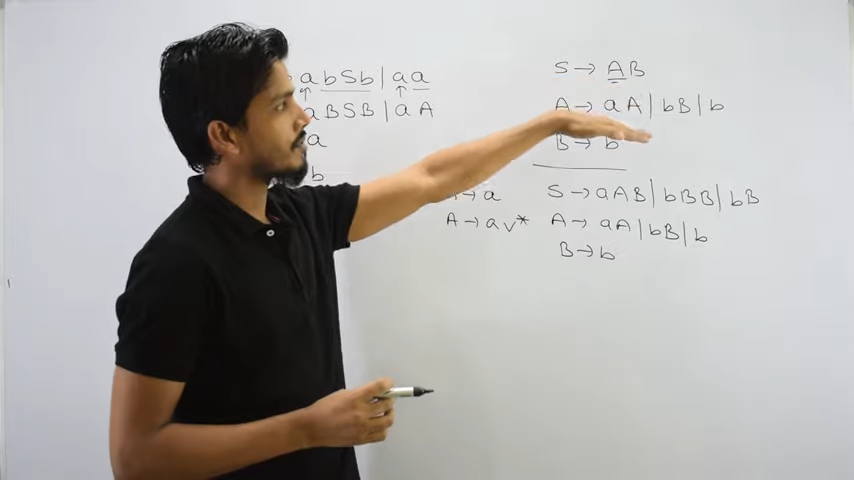 abSb|aa
aBSB|aA
a
b
S→AB
A→aA|bB|b
B→b
→a
A→av*
S→aAB|bBB|bB
A→aA|bB|b
B→b